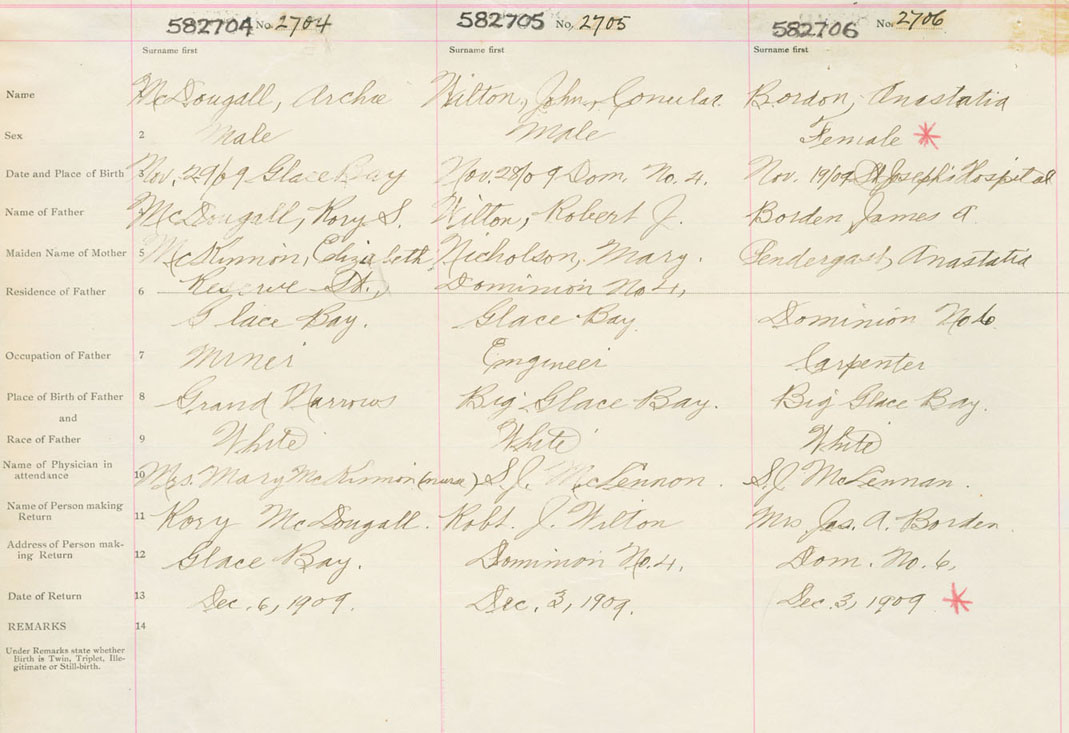 582704 No. 2704 582705 No. 2705 582706 No. 2706
Surname first Surname first Surname first
Name McDougall, Archie Wilton, John, Borden, Anastatia
Sex 2 Male Male Female *
Date and Place of Birth Nov. 29/09 Glace Bay Nov. 28/09 Dom. No. 4. Nov. 19/09 St Joseph's Hospital
Name of Father 4 McDougall, Rory S. Wilton, Robert J. Borden, James A.
Maiden Name of Mother 5 McKinnon, Elizabeth Nicholson, Mary. Pendergast, Anastatia
Residence of Father 6 Reserve St., Dominion No 4,
Glace Bay. Glace Bay Dominion No 6.
Occupation of Father 7 Miner Engineer Carpenter
Place of Birth of Father 8 Grand Narrows Big Glace Bay. Big Glace Bay.
and
Race of Father 9 White White White
Name of Physician in attendance 10 Mrs. Mary McKinnon (nurse) S.J. McLennon. S.J McLennan.
Name of Person making Return 11 Rory McDougall. Robt. J. Wilton Mrs Jas. A. Borden
Address of Person mak-
ing Return 12 Glace Bay. Dominion No. 4. Dom. No. 6.
Date of Return 13 Dec. 6, 1909. Dec. 3, 1909. Dec. 3, 1909 *
REMARKS 14
Under Remarks state whether
Birth is Twin, Triplet, Ille-
gitimate or Still-birth.